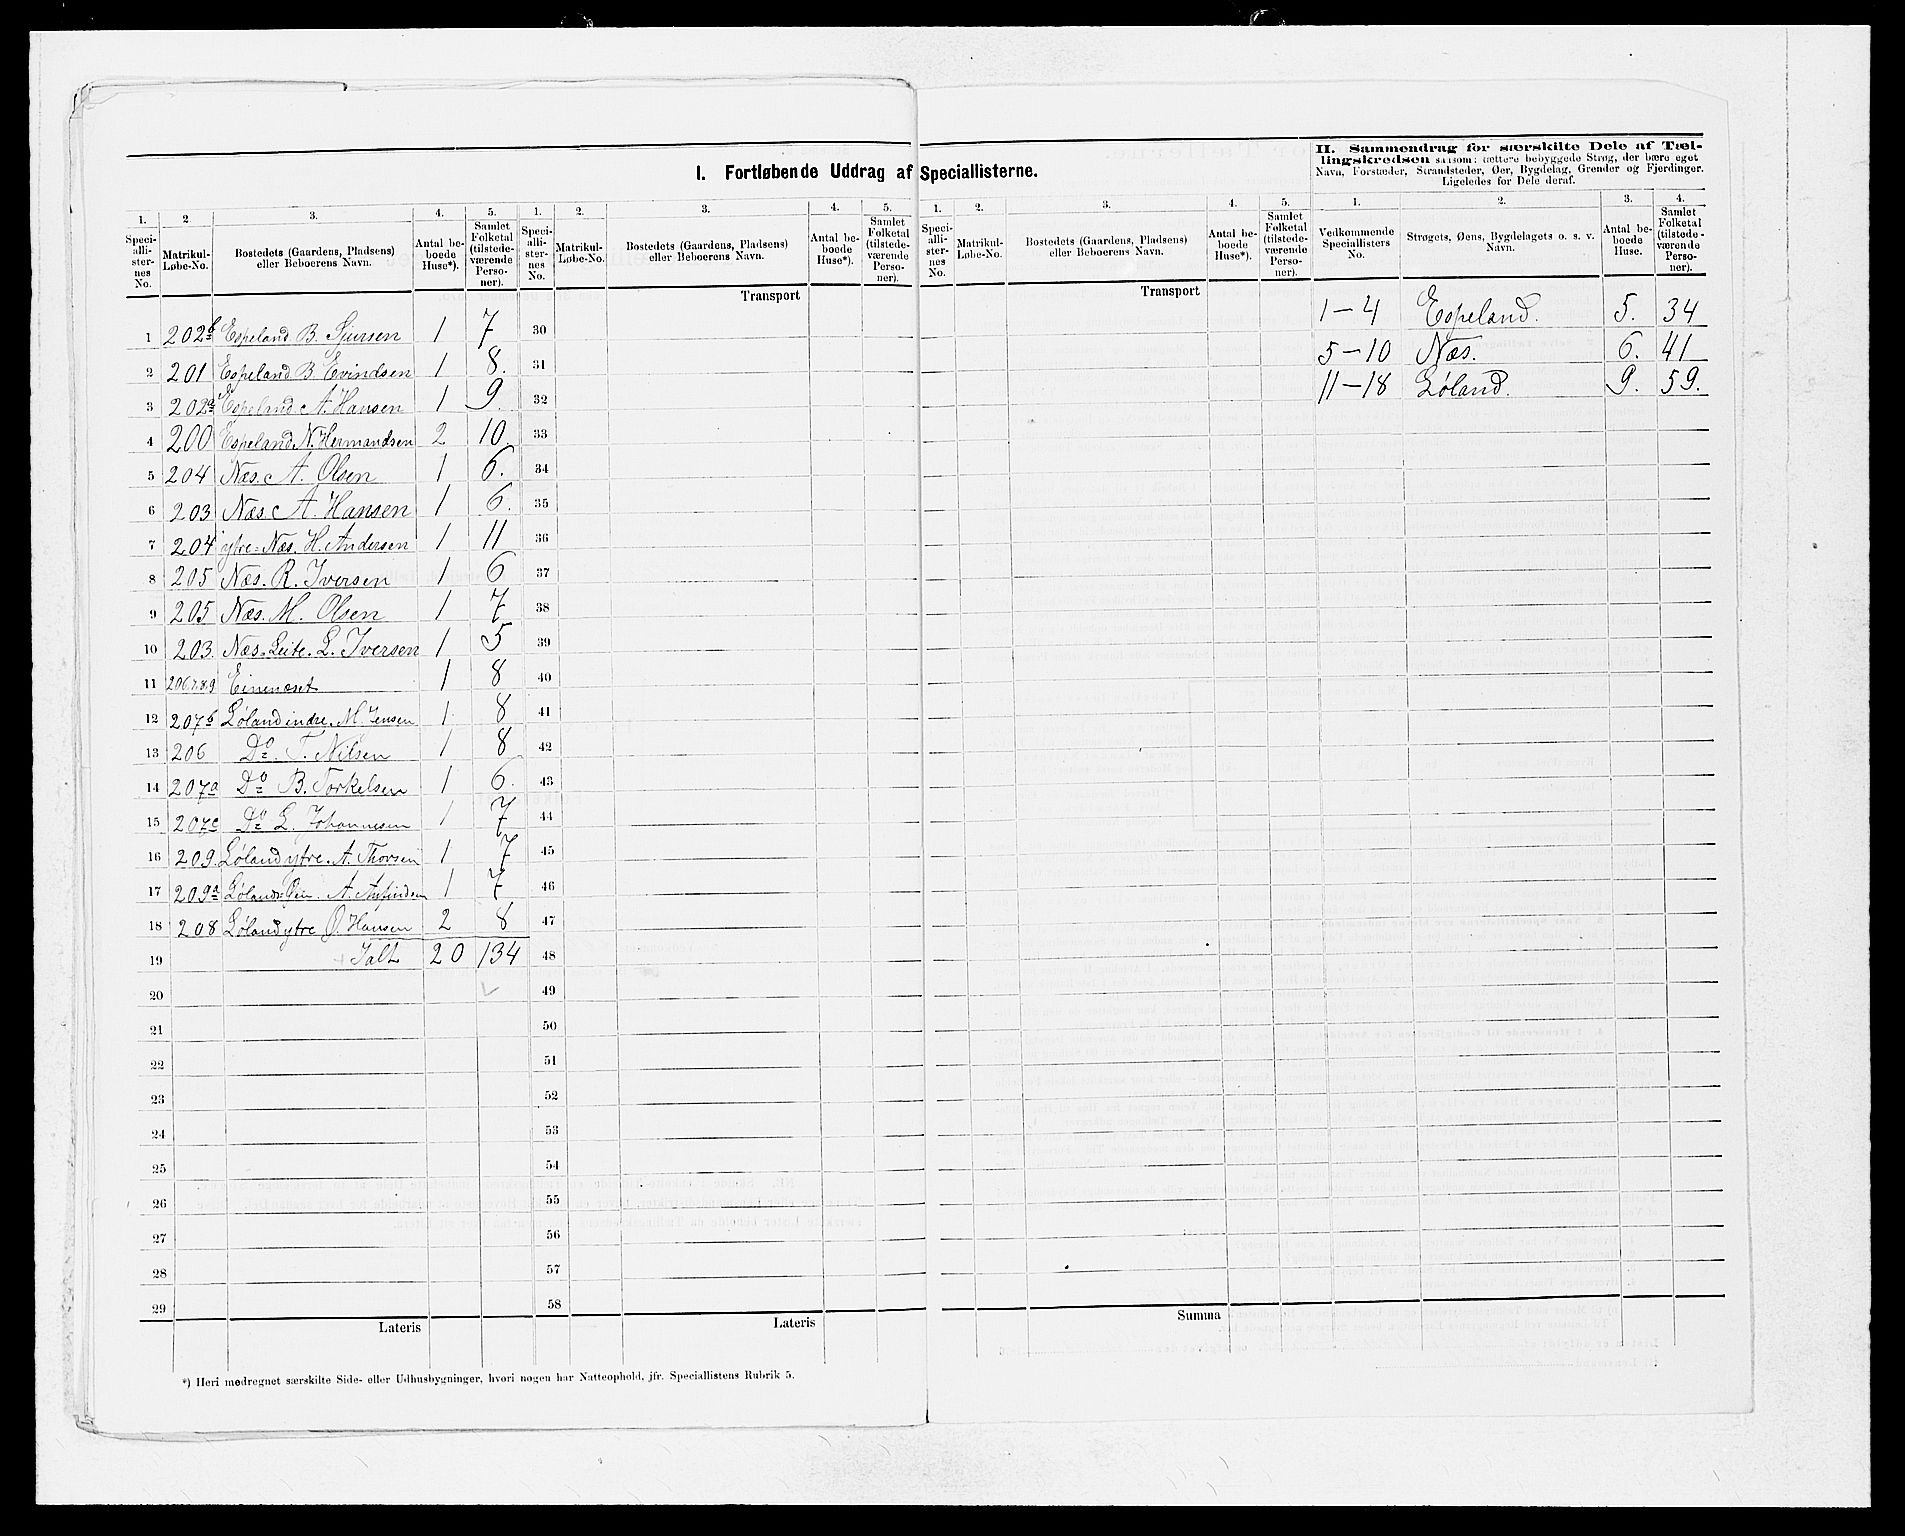 I. Fortløbende Uddrag af Speciallisterne.
II. Sammendrag for særskilte Dele af Tæl-
lingskredsen saasom: tættere bebyggede Strøg, der bære eget
Navn, Forstæder, Strandsteder, Øer, Bygdelag, Grender og Fjerdinger.
Ligeledes for Dele deraf.
1. 2 3. 4. 5. 1. 2. 3. 4. 5. 1. 2. 3. 4. 5. 1. 2. 3. 4.
Speciallisternes No. Matrikul-Løbe-No. Bostedets (Gaardens, Pladsens) eller Beboerens Navn. Antal beboede Huse*). Samlet Folketal (tilstedeværende Personer).
Speciallisternes No. Matrikul-Løbe-No. Bostedets (Gaardens, Pladsens) eller Beboerens Navn. Antal beboede Huse*). Samlet Folketal (tilstedeværende Personer).
Speciallisternes No. Matrikul-Løbe-No. Bostedets (Gaardens, Pladsens) eller Beboerens Navn. Antal beboede Huse*). Samlet Folketal (tilstedeværende Personer).
Vedkommende Speciallisters No. Strøgets, Øens, Bygdelagets o. s. v. Navn. Antal beboede Huse. Samlet Folketal (tilstedeværende Personer).
Transport
Transport
1 202b Espeland B. Sjursen 1 7 30
2 201 Espeland B Evindsen 1 8. 31
3 202a Espeland A. Hansen 1 9 32
4 200 Espeland N. Hermandsen 2 10. 33
5 204 Næs. A. Olsen 1 6. 34
6 203 Næs A. Hansen 1 6. 35
7 204 ytre=Næs. H. Andersen 1 11 36
8 205 Næs. R. Iversen 1 6 37
9 205 Næs. M. Olsen 1 7 38
10 203. Næs. Leite. L. Iversen 1 5 39
11 206.7.8.9 Einenæset 1 8 40
12 207b Løland indre. M. Jensen 1. 8 41
13 206 Do. T. Nilsen 1 8 42
14 207a Do B. Torkelsen 1 6. 43
15 207c Do L. Johannesen 1 7 44
16 209. Løland ytre. A. Thorsen 1 7 45
17 209a Lølands Øen. A. Anfindsen 1 7 46
18 208 Løland ytre O. Hansen 2 8 47
19 Ialt 20 134 48
20 49
21 50
22 51
23 52
24 53
25 54
26 55
27 56
28 57
29 58
Lateris
Lateris
Summa
1–4 Espeland. 5. 34
5–10 Næs. 6. 41
11–18 Løland. 9. 59.
*) Heri medregnet særskilte Side- eller Udhusbygninger, hvori nogen har Natteophold, jfr. Speciallistens Rubrik 5.